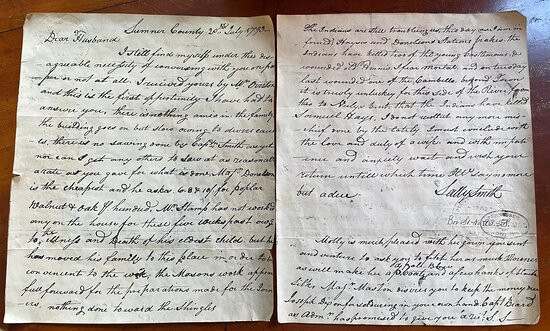 Sumner County, 20th July 1793
Dear Husband
I still find myself under the dis-
agreeable necessity of conversing with you on pa-
per or not at all. I received yours by Mr
and this is the first opportunity I have had to
answer you, there is nothing amiss in the family
the building goes on but slow owing to divers causes
there is no sawing done by Capt Smith as yet
nor can I get any others to saw at as reasonable
a rate as you gave for what is done Maj Donelson
is the cheapest and he asks for poplar
Walnut & Oak hundred, Mr Stamp has not worked
any on the house for these five weeks past owing
to illness and Death of his oldest child, but he
has moved his family to the place in order to be
convenient to the work, the Masons work appears
full forward for the preparations made for the Join-
ers, nothing done toward the Shingles
The Indians are still troubling us, this day I am in
formed Hayses and Donelsons Stations the
Indians have killed two of the young Castlemans, &
wounded old Dannie I fear mortal and on tuesday
last wounded one of the Campbells beyond
it is truly unlucky for this side of the River,
tho to Stately but that the Indians have killed
Samuel Hays, I do not recollect any more mis-
chief done by the lately I must conclude with
the love and duty of a wife and with impati-
ence and anxiety wait and wish your
return until which time I'll say no more
but adieu
Sally Smith
Molly is much pleased with her gown you sent
and venture to ask you to fetch her as much
as will make her a petticoat and a few hanks of
Silk, Maj Maston desires you to keep the money due
Joseph Brown for siding in your own hand Capt Beard
as Admr has promised to give you a S S